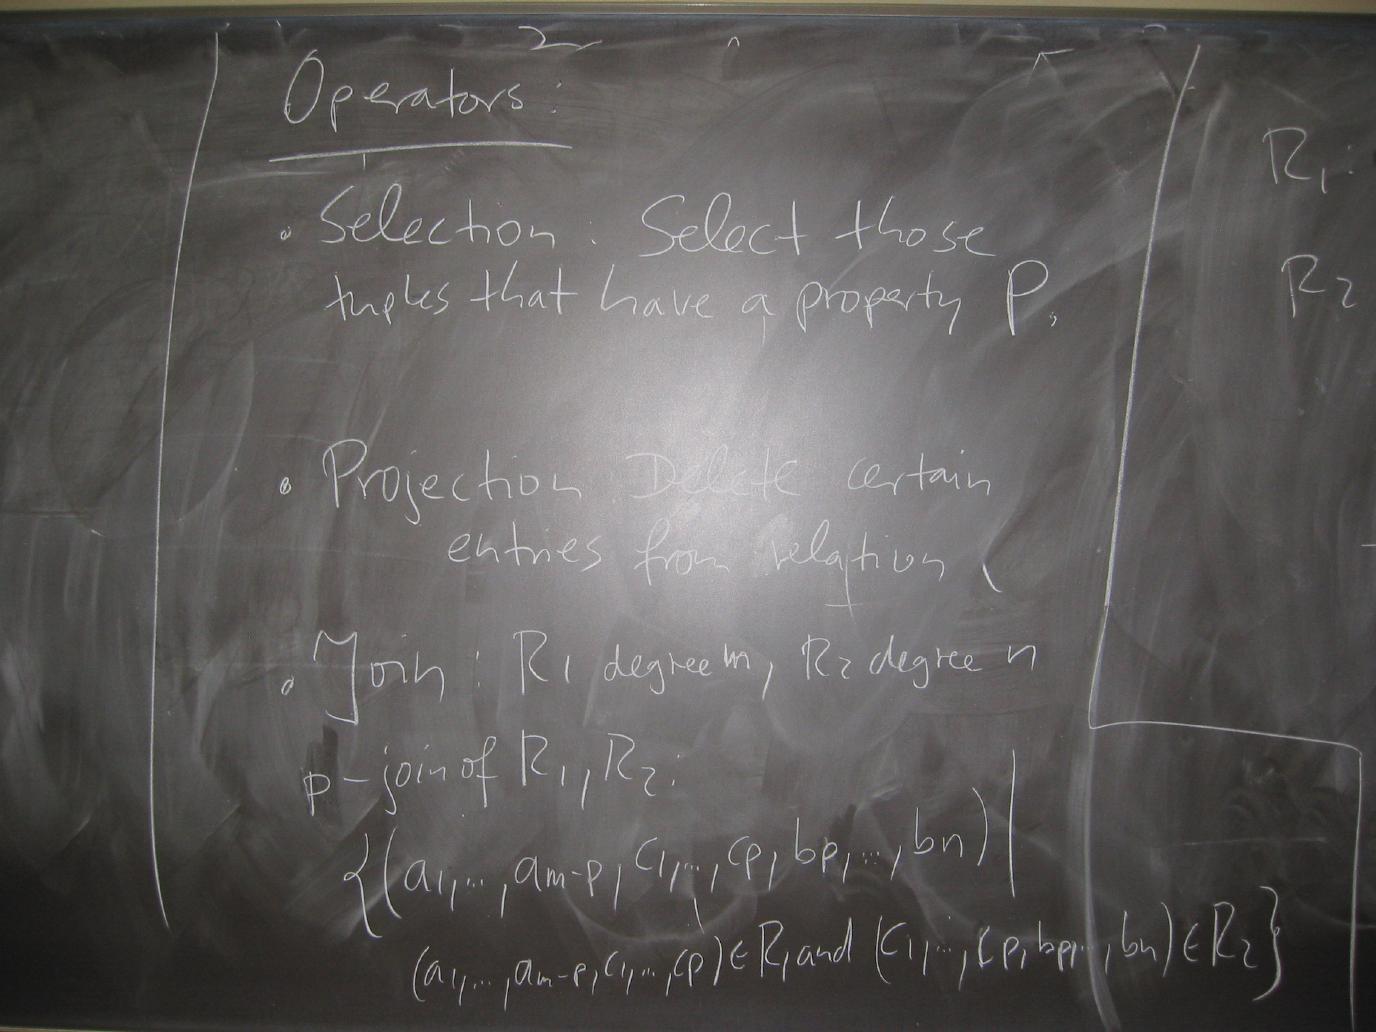 Operators:
• Selection: Select those
tuples that have a property P.
• Projection. Delete certain
entries from relation
• Join: R1 degree m, R2 degree n
p-join of R1, R2:
{(a1,...,am-p, c1,...,cp, bp,...,bn) |
(a1,...,am-p, c1,...,cp) ∈ R1 and (c1,...,cp, bp,...,bn) ∈ R2}
R1:
R2